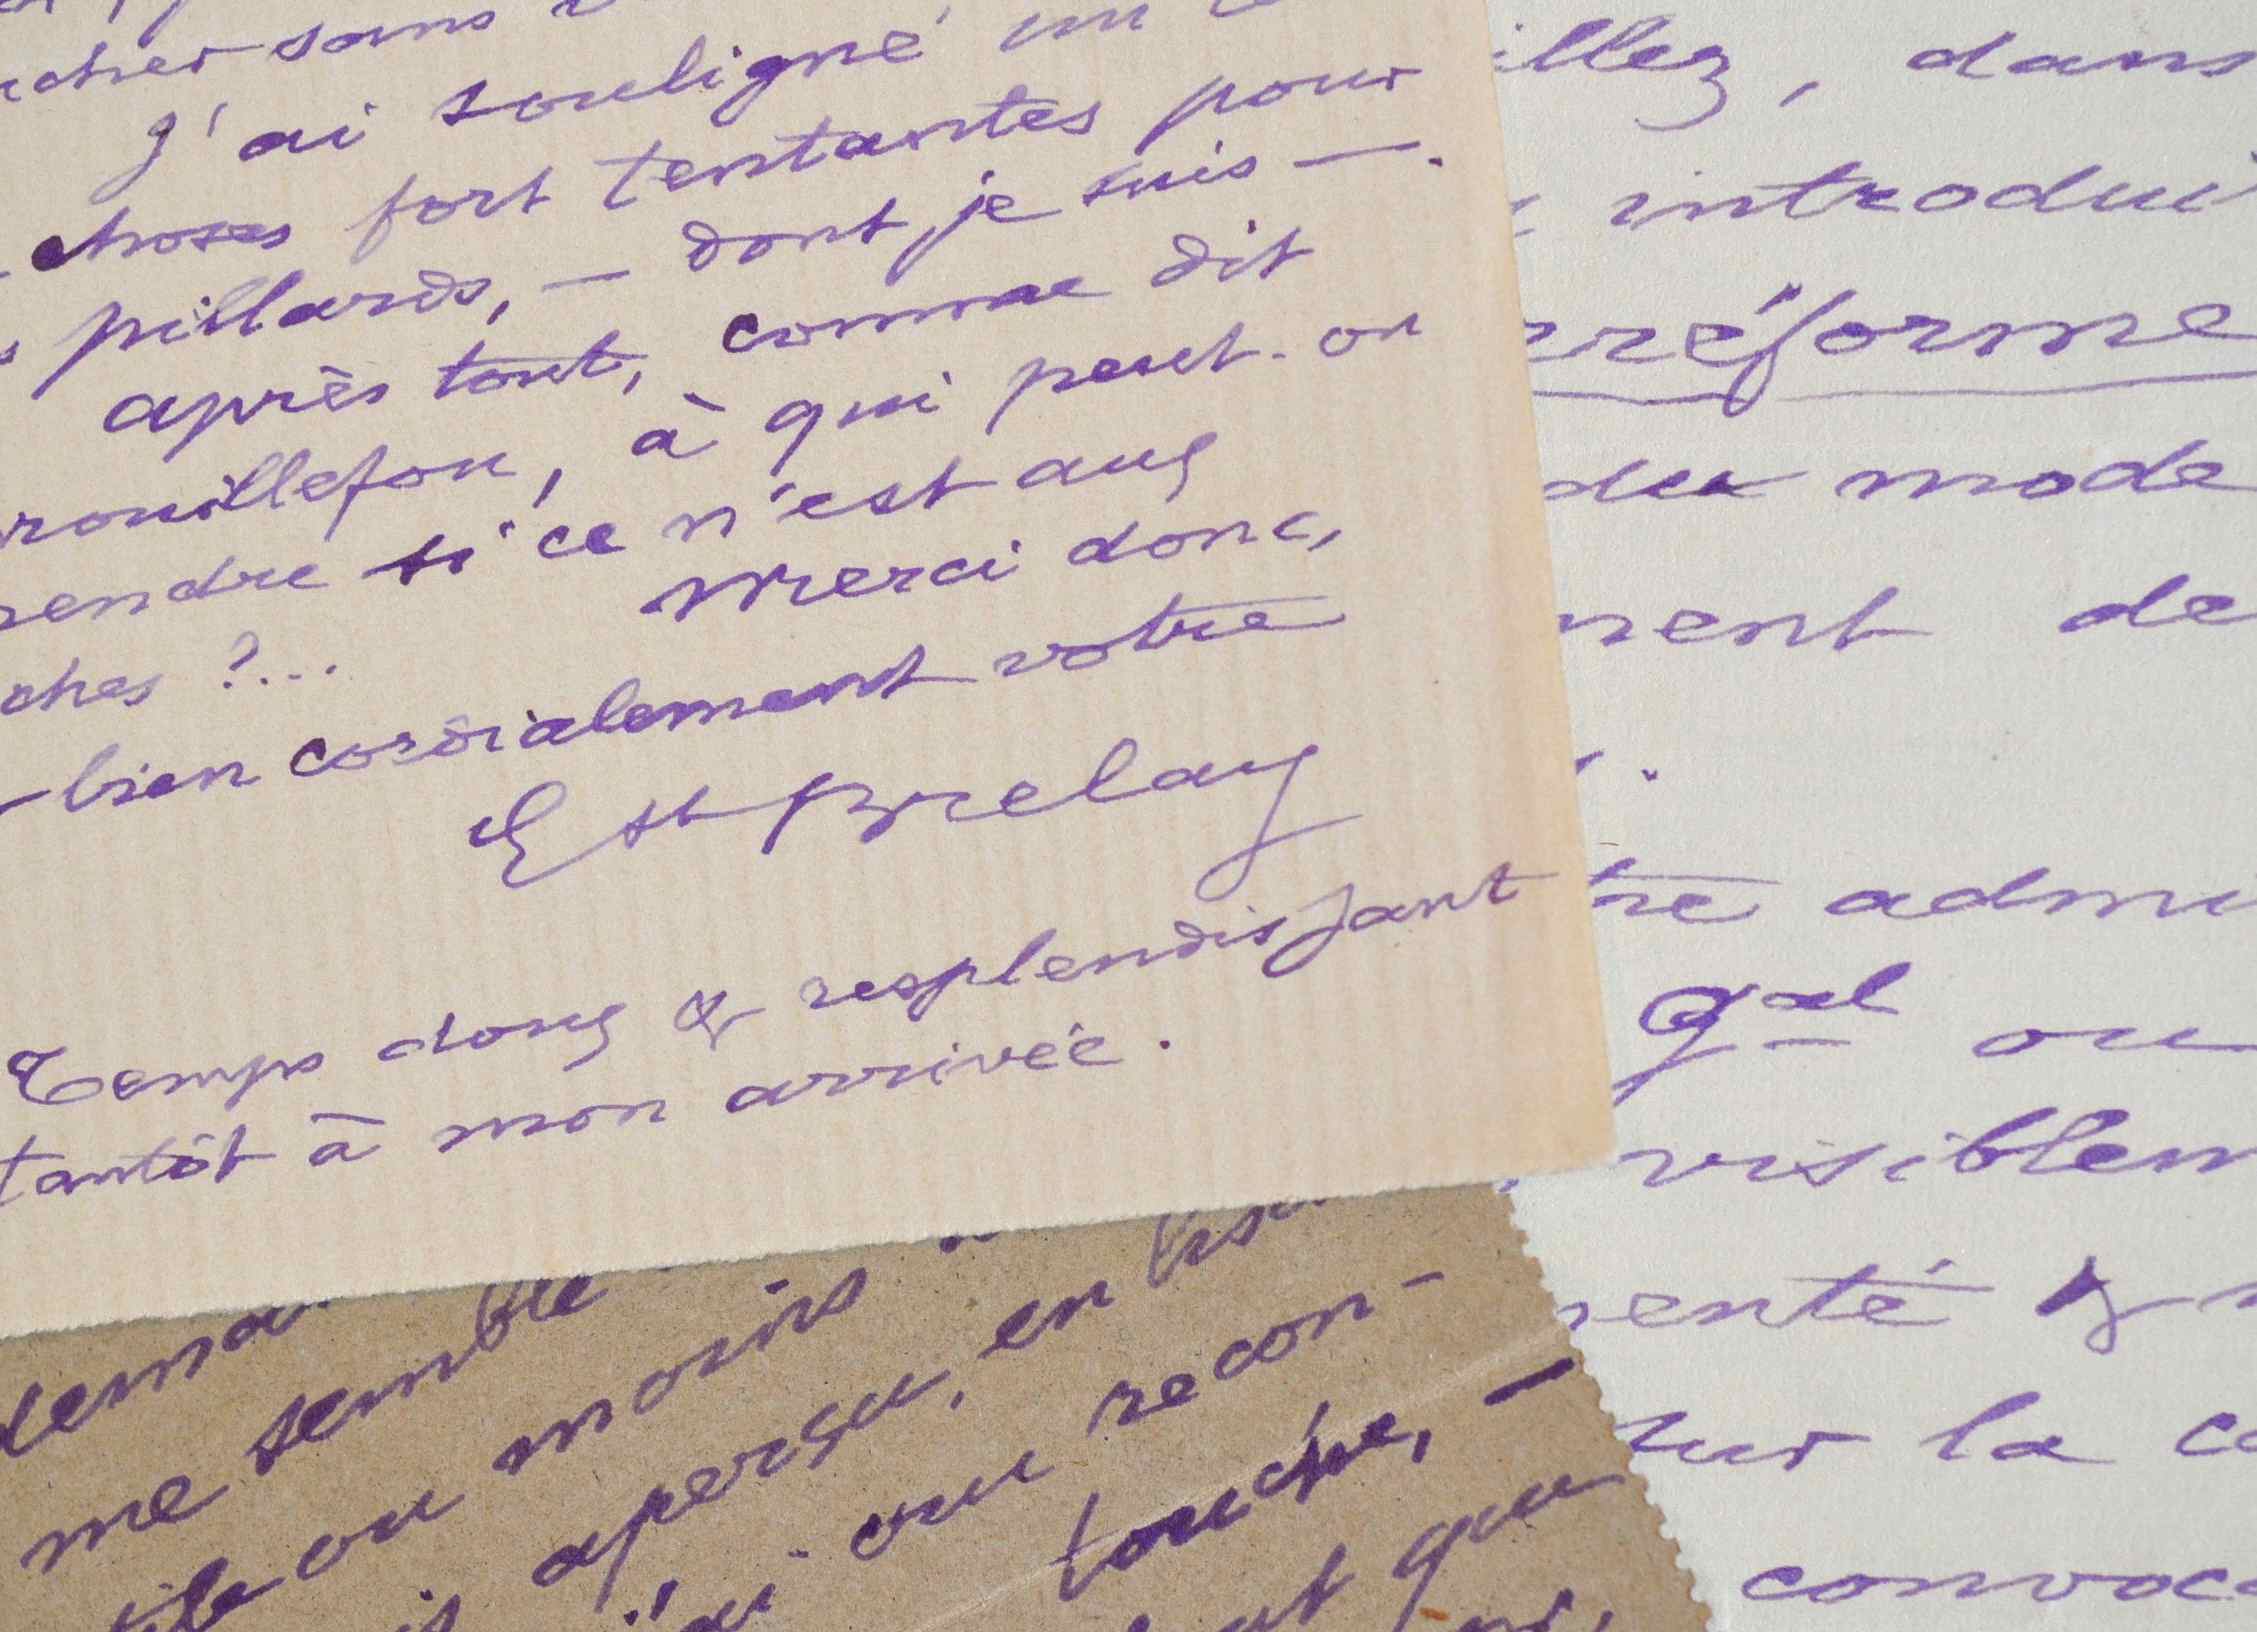 sans
J'ai souligné un
choses fort tentantes pour
pillards, — dont je suis —.
après tout, comme dit
rouillefou, à qui peut-on
rendre si ce n'est aux
Merci donc,
ches ?...
bien cordialement votre
Est Brelay
Temps doux & resplendissant
tantôt à mon arrivée.
illez, dans
introdui
réforme
du mode
ment de
tre admi
Gal ou
visiblem
enté &
sur la c
convoc
me semble
ou moins
aperçu, en lisa
ou recon-
touche, —
qu